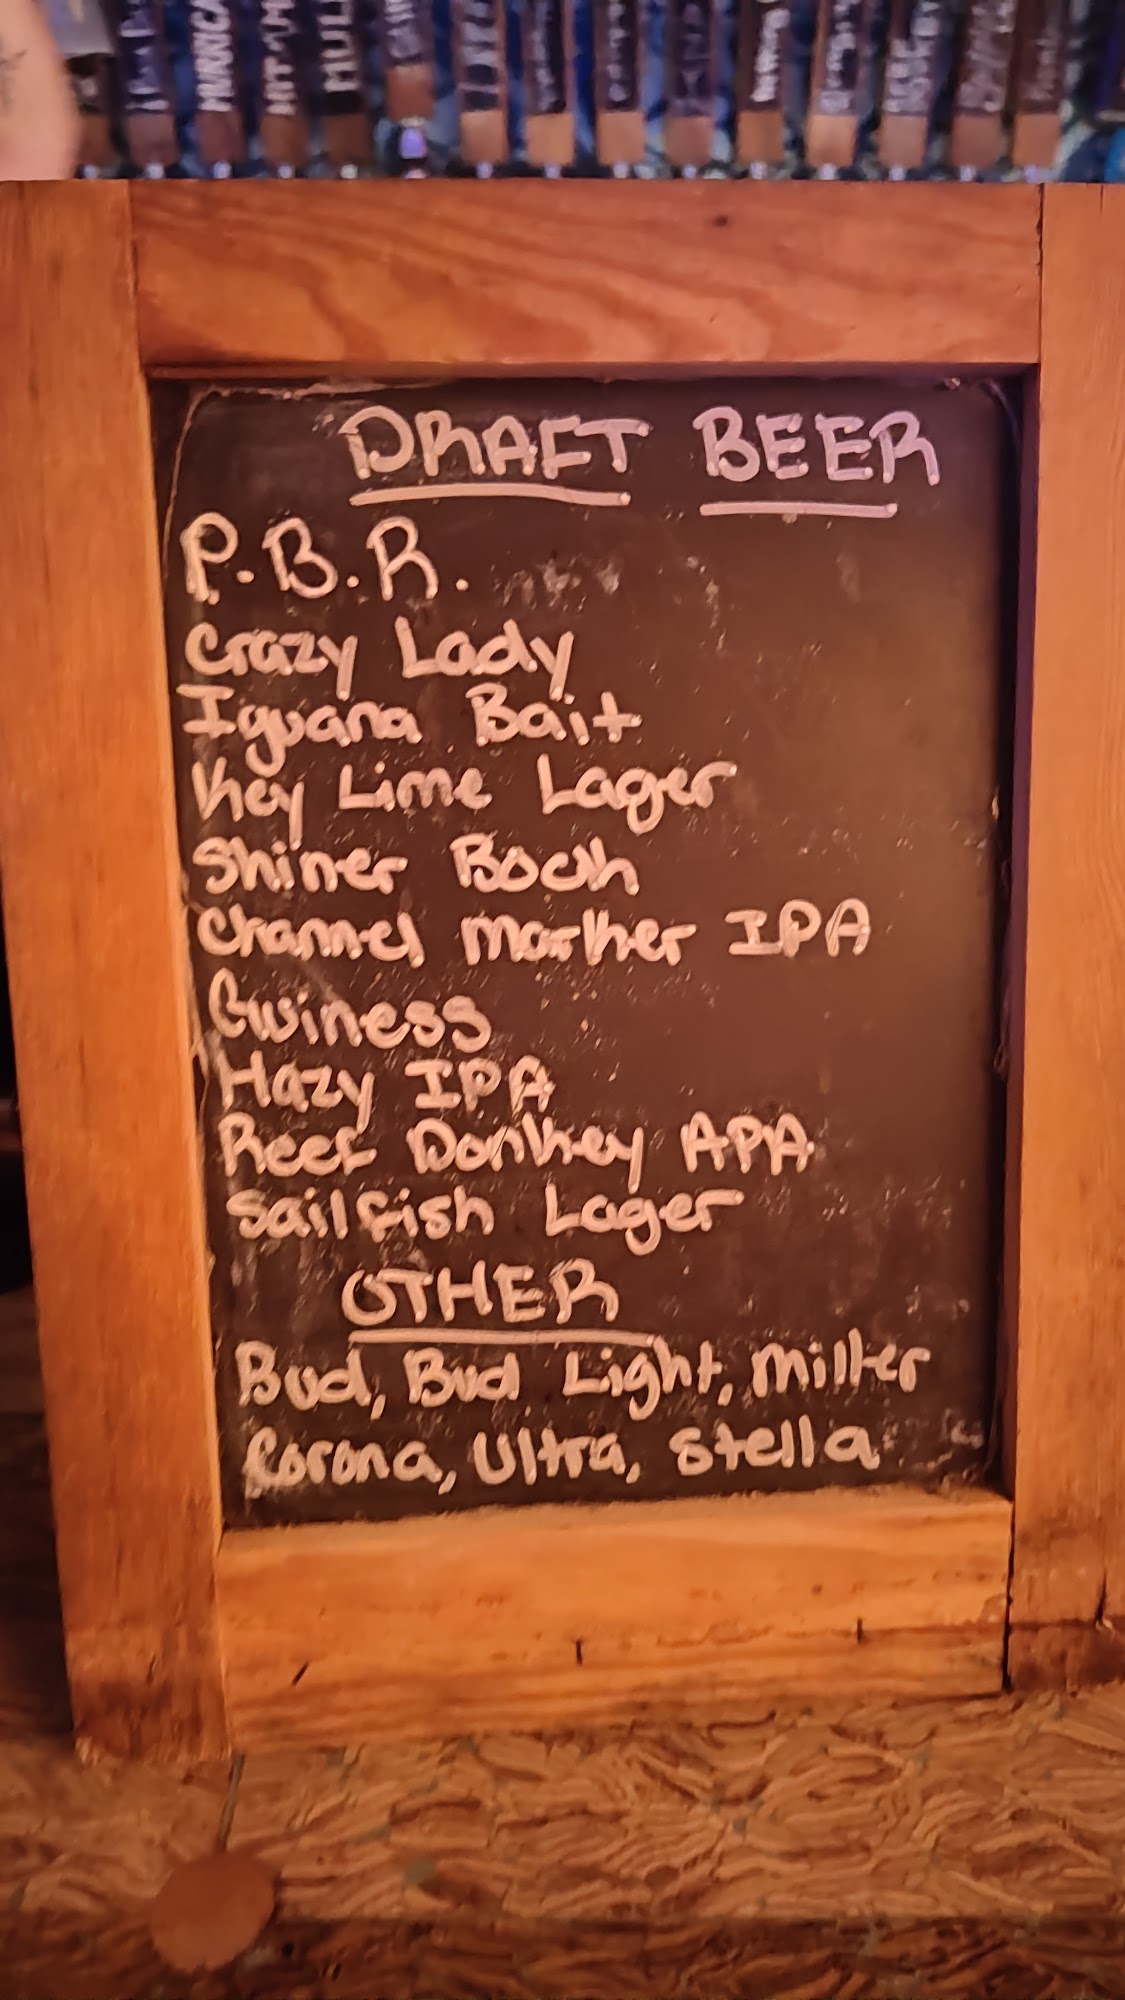 DRAFT BEER
P.B.R.
Crazy Lady
Iguana Bait
Key Lime Lager
Shiner Bock
Channel Marker IPA
Guiness
Hazy IPA
Reef Donkey APA
Sailfish Lager
OTHER
Bud, Bud Light, Miller
Corona, Ultra, Stella